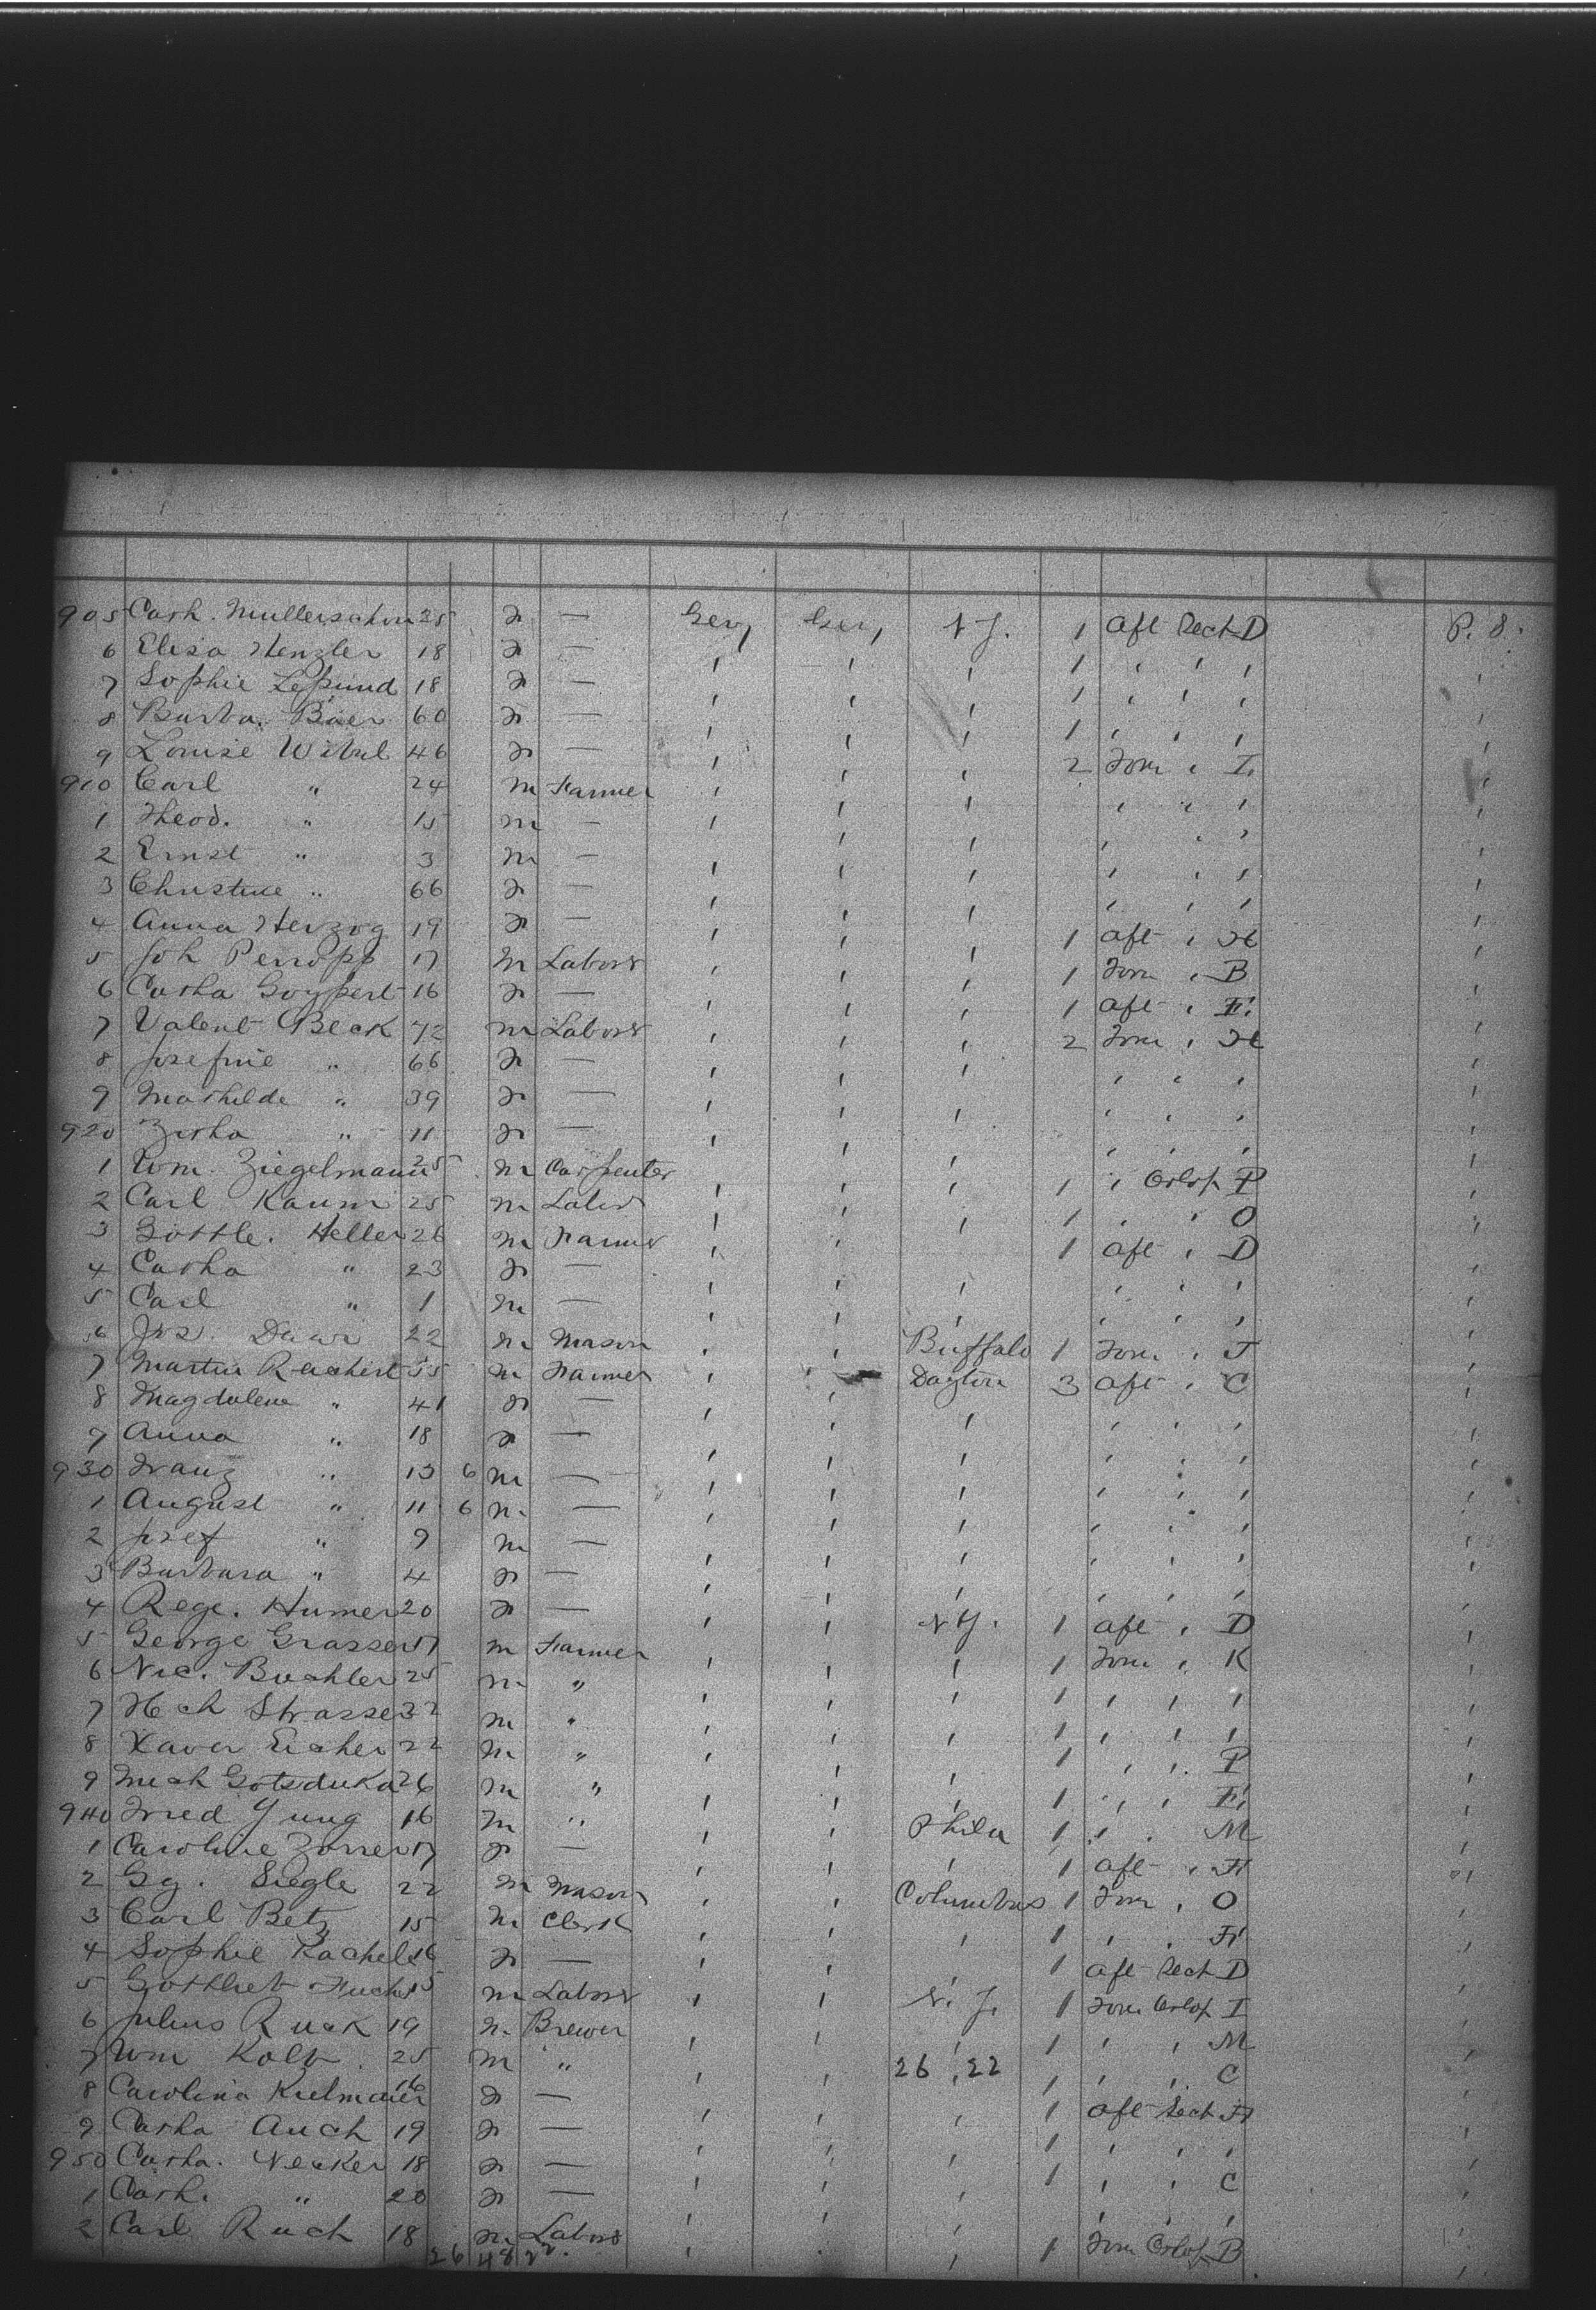 905 Cath. Mullerschon 25 f — Gery Gery N Y. 1 Aft Sect D P. S.
6 Elisa Henzler 18 f — ' ' ' 1 ' ' ' '
7 Sophie 18 f — ' ' ' 1 ' ' ' '
8 Barba. Baer 60 f — ' ' ' 1 ' ' ' '
9 Louise 46 f — ' ' ' 2 Forw ' I '
910 Carl " 24 m Farmer ' ' ' ' ' ' '
1 Theod. " 15 m — ' ' ' ' ' ' '
2 Ernst " 3 m — ' ' ' ' ' ' '
3 Christine " 66 f — ' ' ' ' ' ' '
4 Anna Herzog 19 f — ' ' ' 1 aft ' H '
5 Joh 17 m Labor ' ' ' 1 Forw ' B '
6 Catha 16 f — ' ' ' 1 aft ' '
7 Valent Beck 72 m Labor ' ' ' 2 Forw ' H '
8 Josefine " 66 f — ' ' ' ' ' ' '
9 Mathilde " 39 f — ' ' ' ' ' ' '
920 " 11 f — ' ' ' ' ' ' '
1 Wm. Ziegelmann 25 m Carpenter ' ' ' 1 ' Orlop P '
2 Carl Kaum 25 m Labor ' ' ' 1 ' ' O '
3 Gottle. Heller 26 m Farmer ' ' 1 aft ' D '
4 Catha " 23 f — ' ' ' ' ' ' '
5 Carl " 1 m — ' ' ' ' ' '
6 Jos. 22 m Mason ' ' Buffalo 1 Forw ' J '
7 Martin Rachert 55 m Farmer ' ' Dayton 3 aft ' C '
8 Magdalena " 41 f — ' ' ' ' ' ' '
9 Anna " 18 f — ' ' ' ' ' ' '
930 Franz " 13 6 m — ' ' ' ' ' ' '
1 August " 11 6 m — ' ' ' ' ' ' '
2 Josef " 9 m — ' ' ' ' ' ' '
3 Barbara " 4 f — ' ' ' ' ' ' '
4 Rege. Humer 20 f — ' ' N Y. 1 aft ' D '
5 George Grasser 17 m Farmer ' ' ' 1 Forw ' K '
6 Nic. Buchler 25 m " ' ' ' 1 ' ' ' '
7 Hch Strasser 32 m " ' ' ' 1 ' ' ' '
8 Xaver Eicher 22 m " ' ' ' 1 ' ' P '
9 Mich 26 m " ' ' ' 1 ' ' '
940 Fred Yung 16 m " ' ' Phila 1 ' ' M '
1 Caroline Zorrer 17 f — ' ' ' 1 aft ' F '
2 Gg. Siegle 22 m Mason ' ' Columbus 1 Forw ' O '
3 Carl Betz 15 m Clerk ' ' ' 1 ' ' F '
4 Sophie Rachel 16 f — ' ' ' 1 aft Sect D '
5 Gottlieb Fuchs 15 m Labor ' ' N. Y. 1 Forw Orlop I '
6 Julius Ruck 19 m Brewer ' ' ' 1 ' ' M '
7 Wm Kolb 25 m " ' ' 26 22 1 ' ' C '
8 Carolina Kielmaier 16 f — ' ' ' 1 aft Sect F '
9 Catha Auch 19 f — ' ' ' 1 ' ' ' '
950 Catha. Necker 18 f — ' ' ' 1 ' ' C '
1 Cath. " 20 f — ' ' ' ' ' ' '
2 Carl Ruch 18 m Labor ' ' ' 1 Forw Orlop B '
26 48 22.